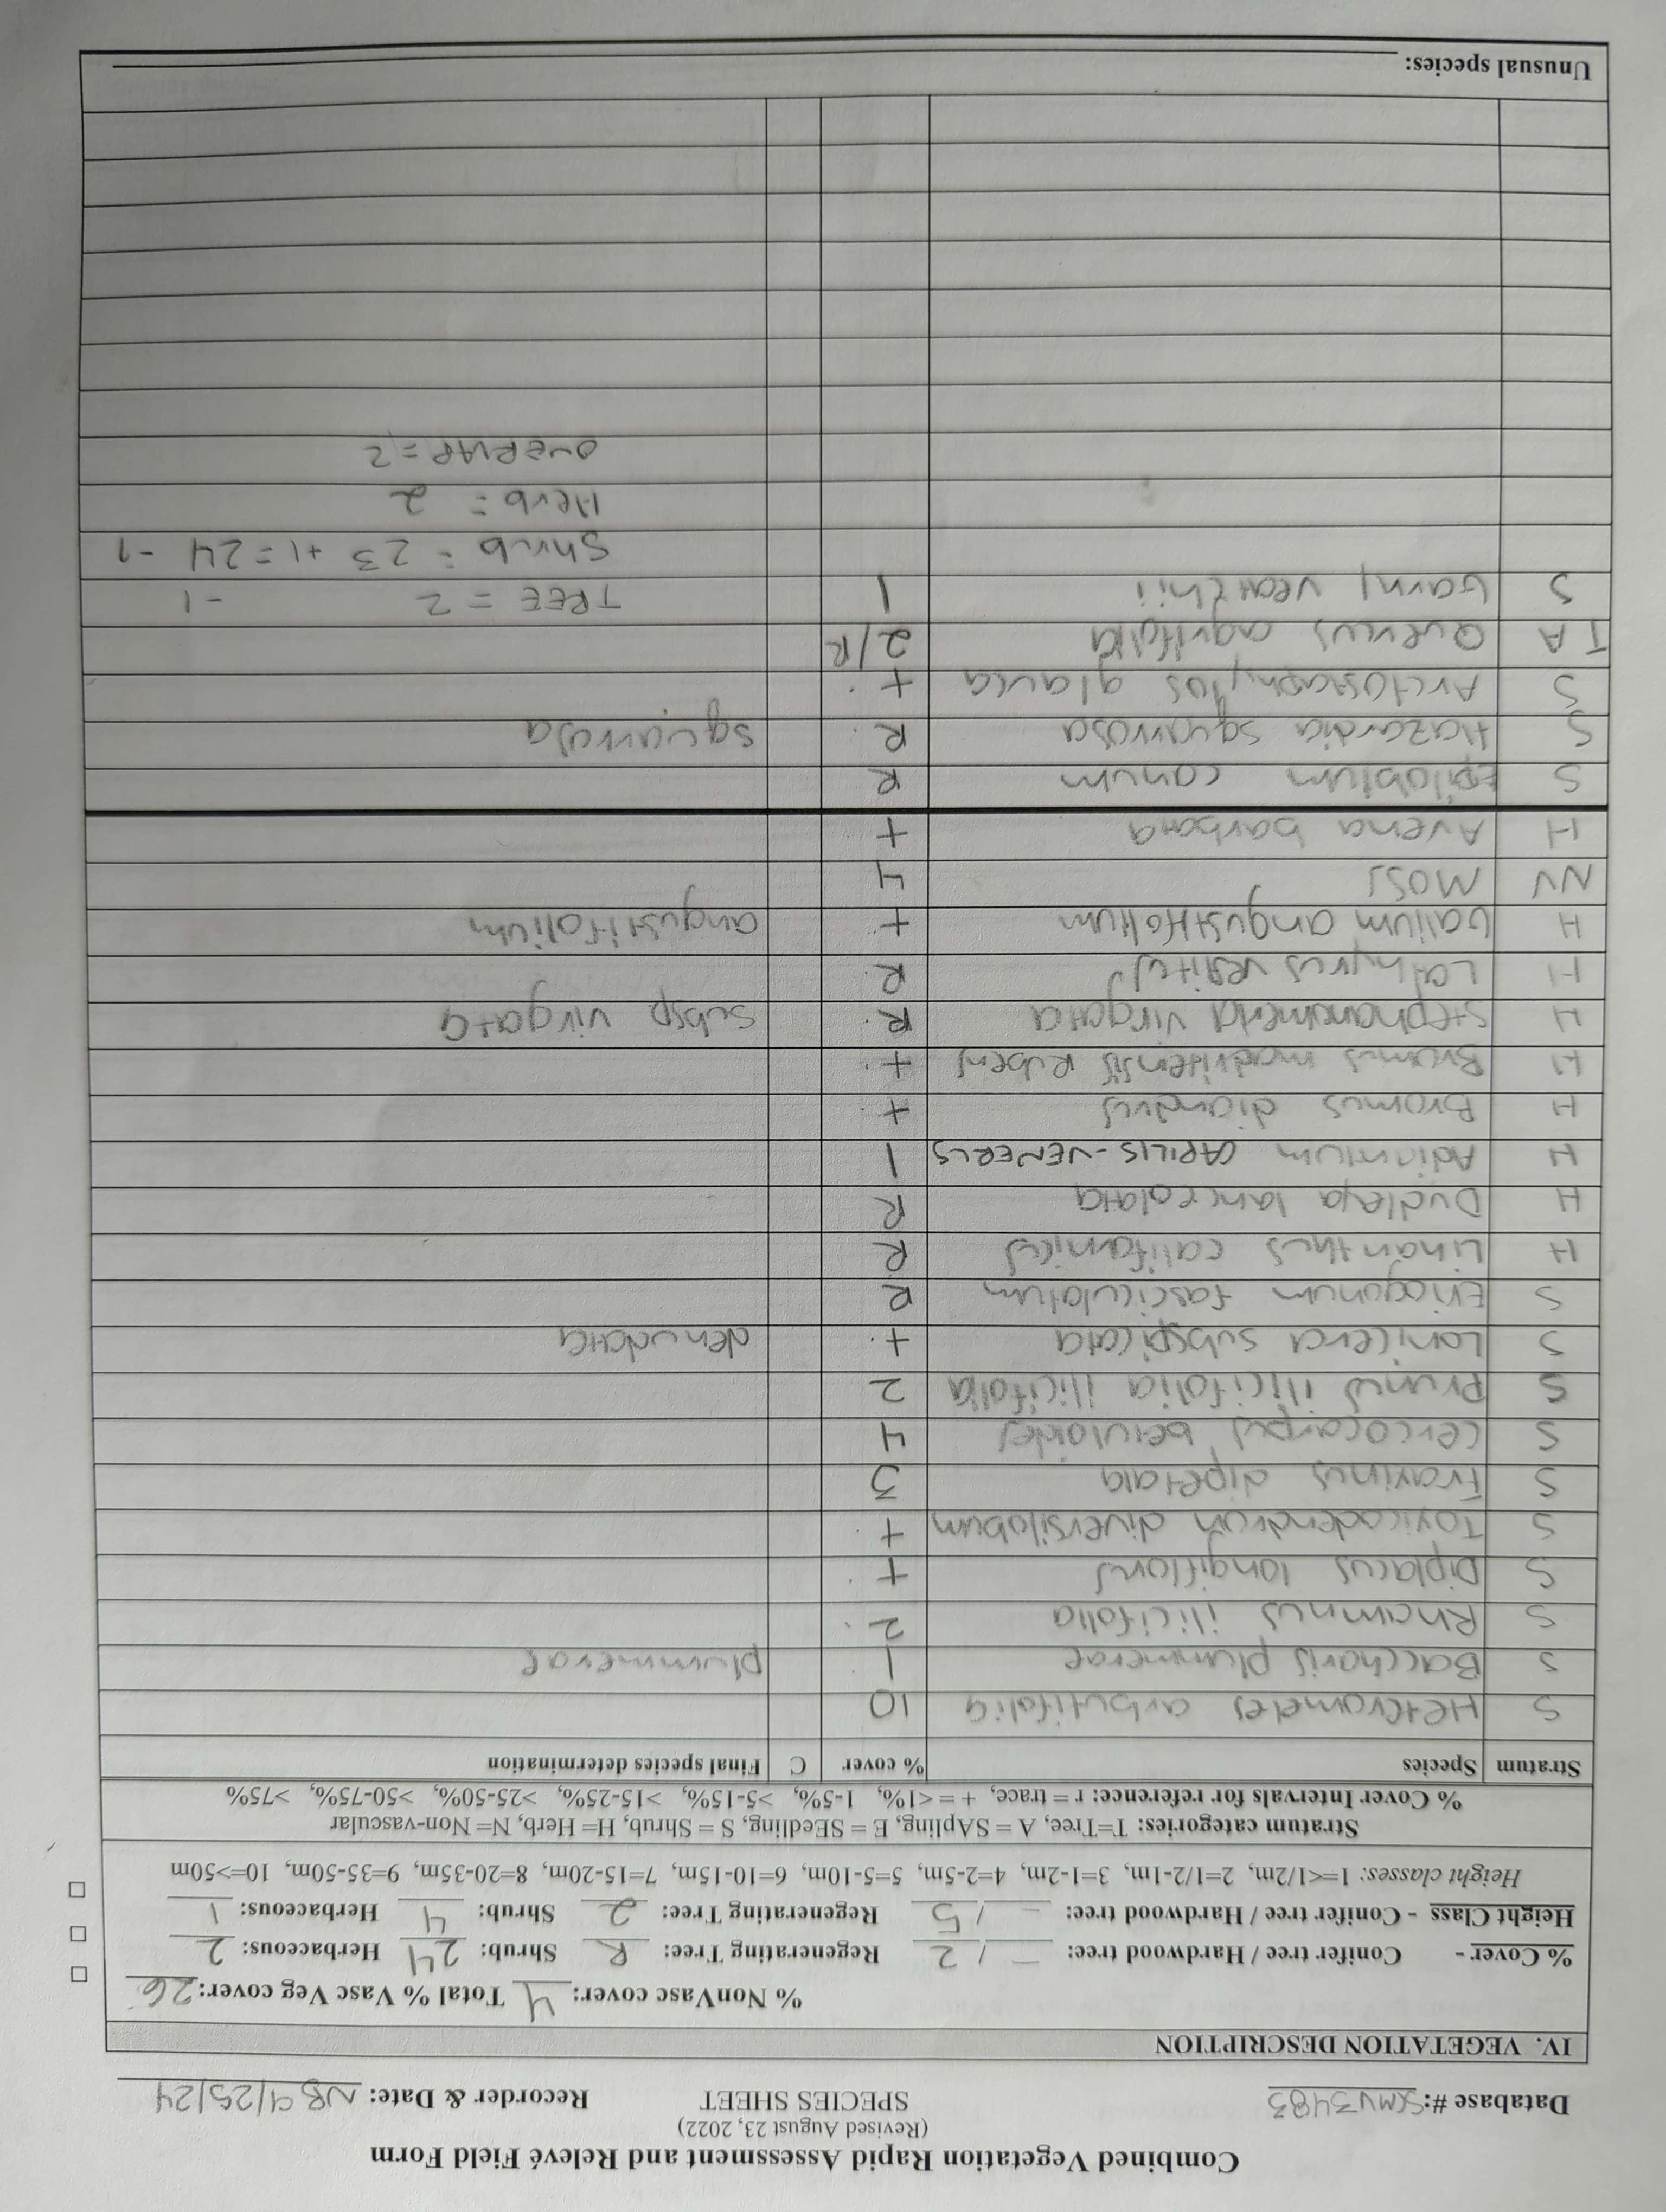 Combined Vegetation Rapid Assessment and Relevé Field Form
(Revised August 23, 2022)
SPECIES SHEET
Database #: SCMV3483 Recorder & Date: NB 9/25/24
IV. VEGETATION DESCRIPTION
% NonVasc cover: 4 Total % Vasc Veg cover: 26
% Cover - Conifer tree / Hardwood tree: — / 2 Regenerating Tree: R Shrub: 24 Herbaceous: 2
Height Class - Conifer tree / Hardwood tree: — / 5 Regenerating Tree: 2 Shrub: 4 Herbaceous: 1
Height classes: 1=<1/2m, 2=1/2-1m, 3=1-2m, 4=2-5m, 5=5-10m, 6=10-15m, 7=15-20m, 8=20-35m, 9=35-50m, 10=>50m
Stratum categories: T=Tree, A = SApling, E = SEedling, S = Shrub, H= Herb, N= Non-vascular
% Cover Intervals for reference: r = trace, + = <1%, 1-5%, >5-15%, >15-25%, >25-50%, >50-75%, >75%
Stratum Species % cover C Final species determination
S Heteromeles arbutifolia 10
S Baccharis plummerae 1 plummerae
S Rhamnus ilicifolia 2
S Diplacus longiflorus +
S Toxicodendron diversilobum +
S Fraxinus dipetala 3
S Cercocarpus betuloides 4
S Prunus ilicifolia ilicifolia 2
S Lonicera subspicata + denudata
S Eriogonum fasciculatum R
H Linanthus californicus R
H Dudleya lanceolata R
H Adiantum CAPILIS-VENERUS 1
H Bromus diandrus +
H Bromus madritensis Rubens +
H Stephanomeria virgata R subsp virgata
H Lathyrus vestitus R
H Galium angustifolium + angustifolium
NV MOSS 4
H Avena barbata +
S Epilobium canum R
S Hazardia squarrosa R squarrosa
S Arctostaphylos glauca +
TA Quercus agrifolia 2/R
S Garry veatchii 1 TREE = 2 -1
Shrub = 23 +1 = 24 -1
Herb = 2
OVERLAP = 2
Unusual species: